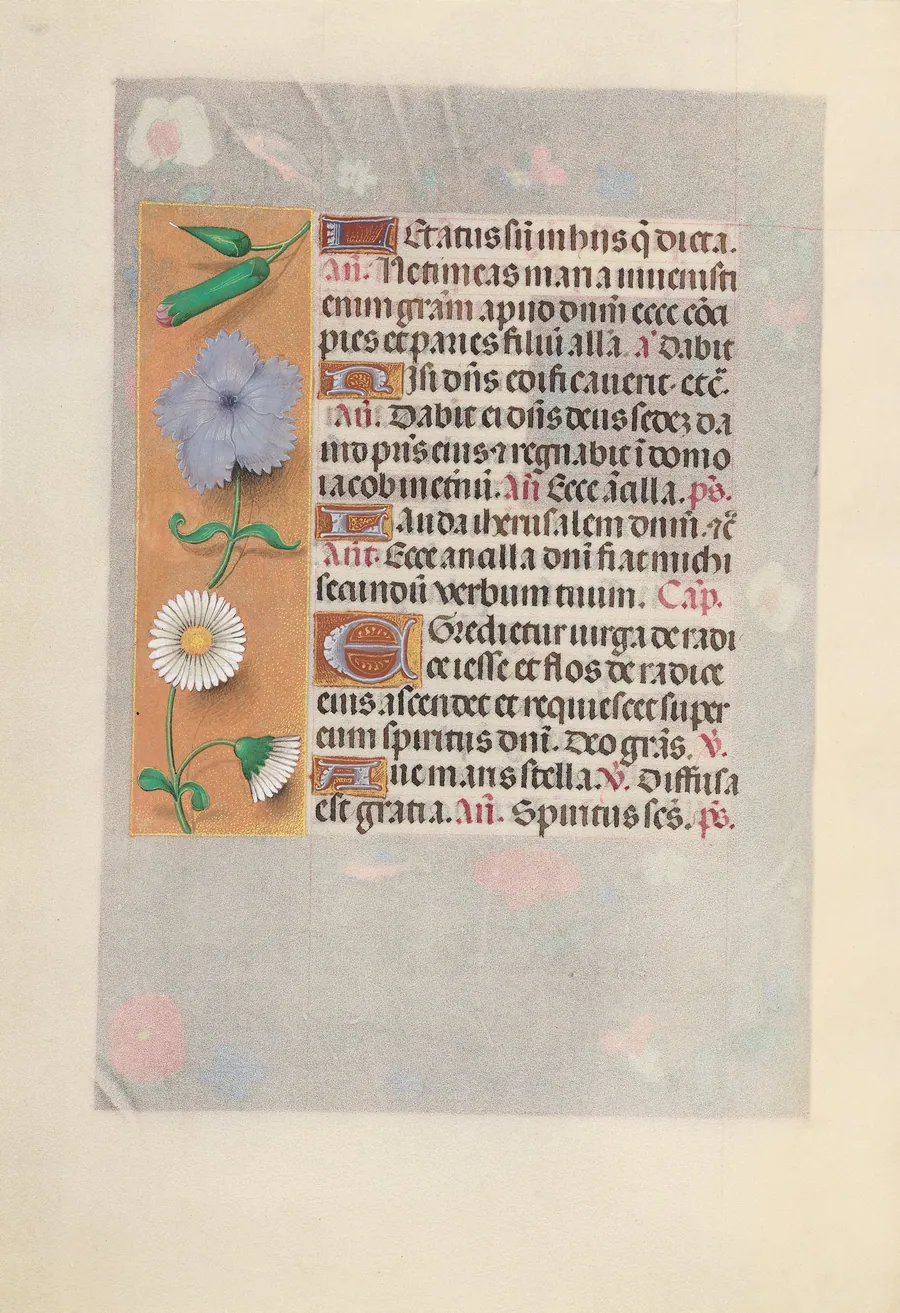 Letatus sū in hiis q̄ dicta.
An̄. Ne timeas maria inuenisti
enim grām apud dnm̄ ecce cōci
pies et paries filiū all'a. a' Dabit
Nisi dn̄s edificauerit. etc̄.
An̄. Dabit ei dn̄s deus sedez da
uid pris̄ eius ⁊ regnabit ī domo
iacob in et'nū. An̄ Ecce ācilla. ps̄.
Lauda iherusalem dnm̄. ⁊c̄
Ant. Ecce ancilla dnī fiat michi
secundū verbum tuum. Cap̄.
Egredietur uirga de radi
ce iesse et flos de radice
eius ascendet et requiescet super
eum spiritus dnī. Deo grās. v̄.
Aue maris stella. v̄. Diffusa
est gratia. An̄. Spiritus scs̄. ps̄.